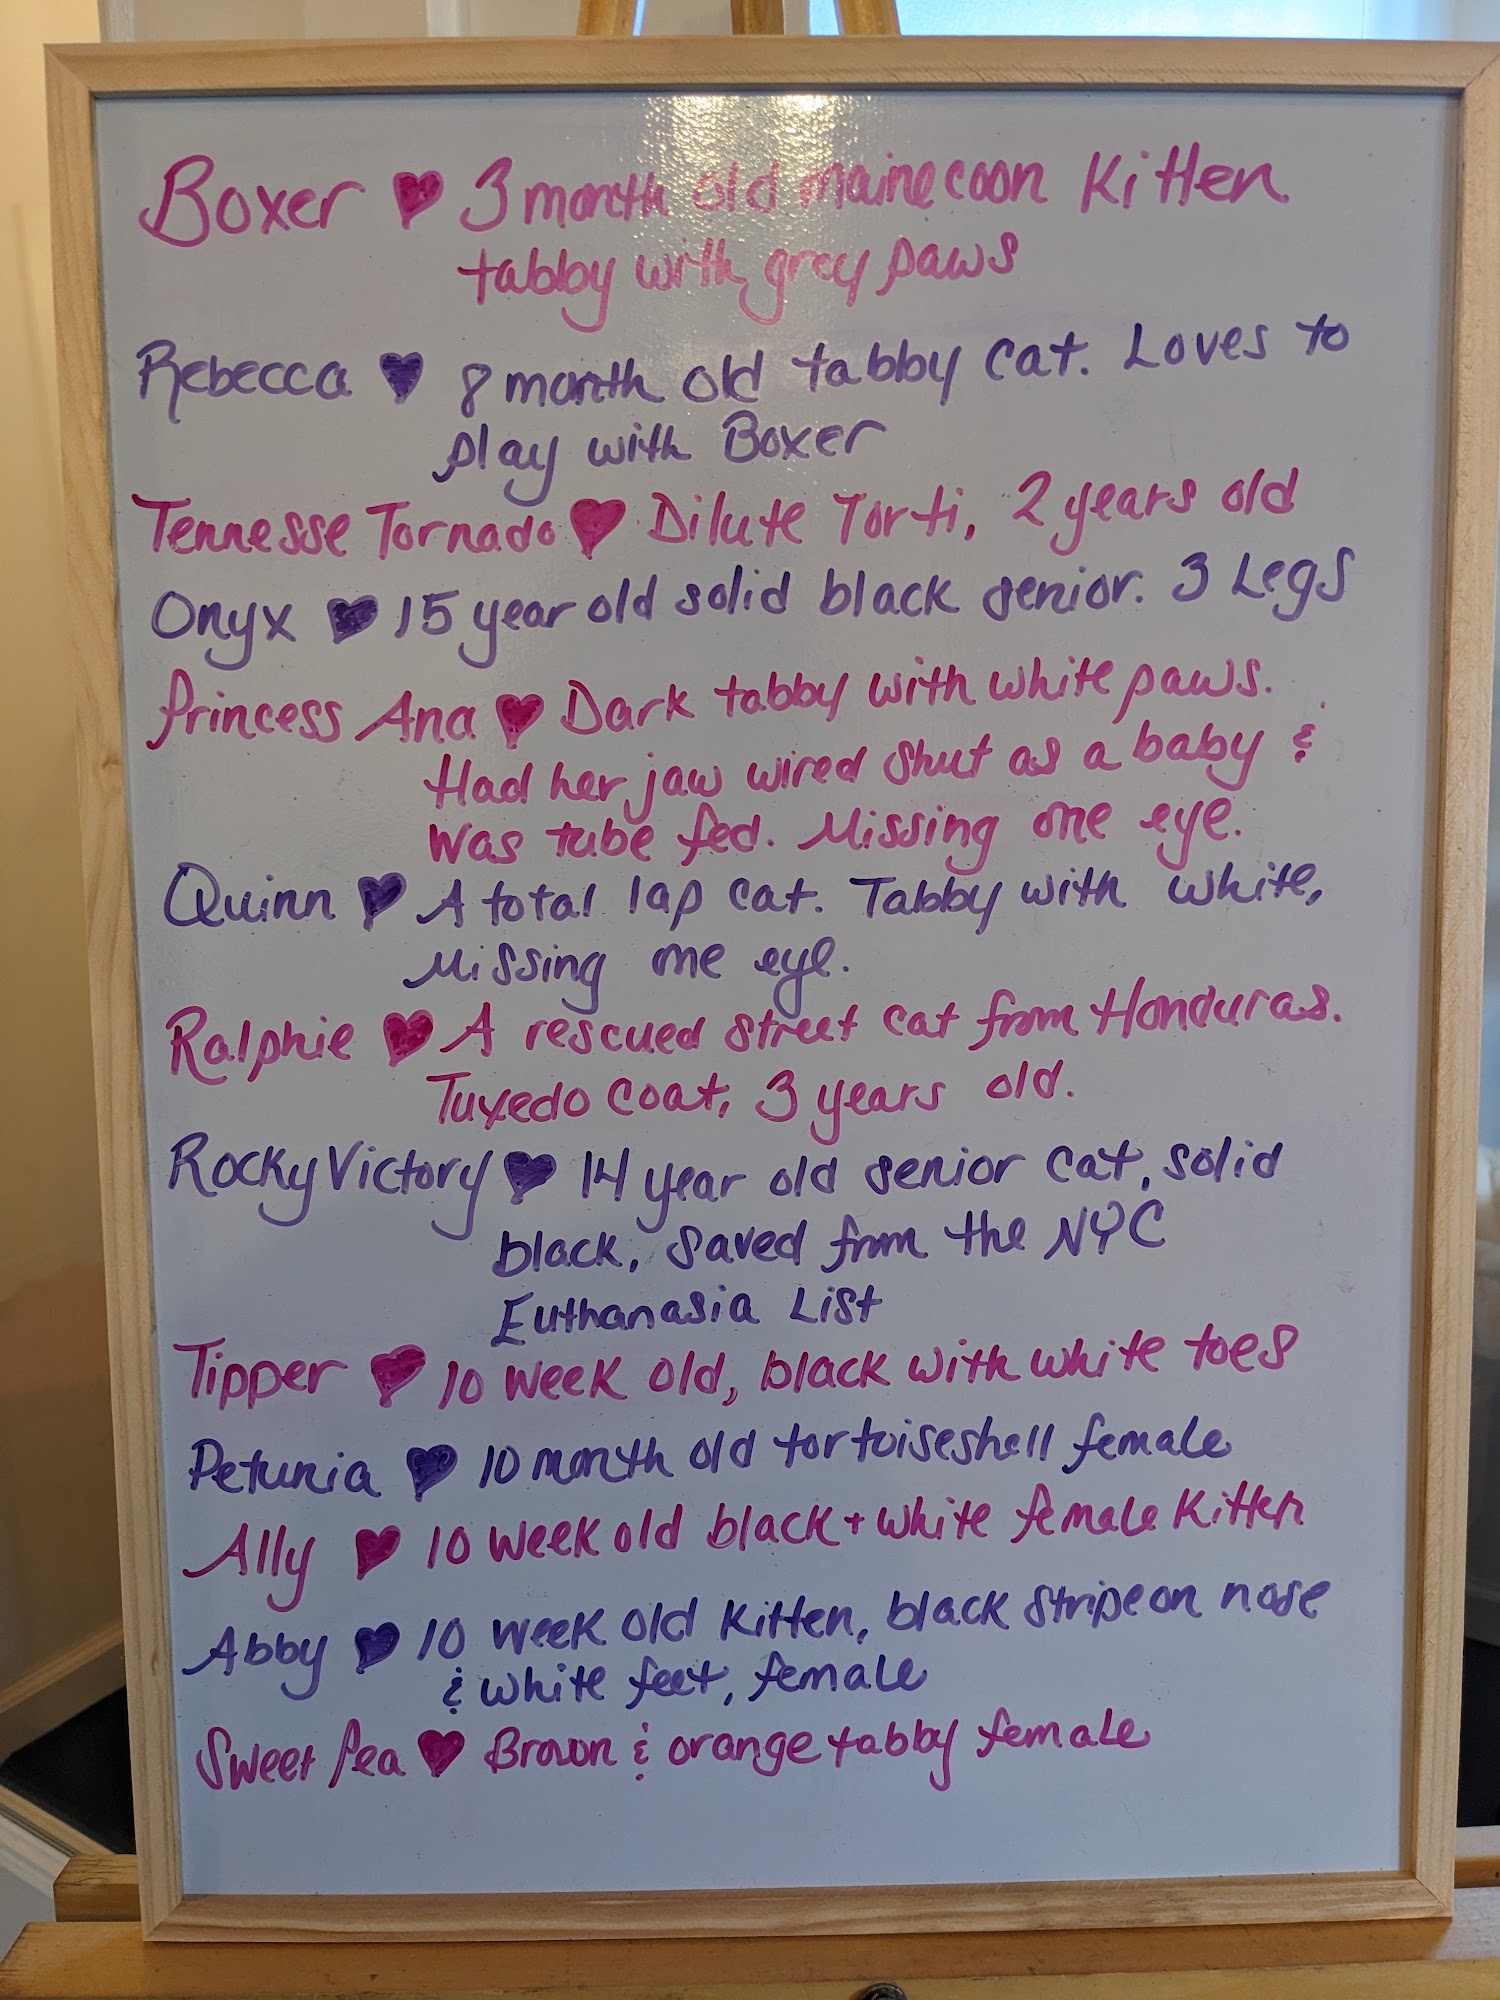 Boxer ♥ 3 month old mainecoon Kitten
tabby with grey paws
Rebecca ♥ 8 month old tabby cat. Loves to
play with Boxer
Tennesse Tornado ♥ Dilute Torti, 2 years old
Onyx ♥ 15 year old solid black senior. 3 Legs
Princess Ana ♥ Dark tabby with white paws.
Had her jaw wired shut as a baby &
was tube fed. Missing one eye.
Quinn ♥ A total lap cat. Tabby with white,
Missing one eye.
Ralphie ♥ A rescued street cat from Honduras.
Tuxedo coat, 3 years old.
Rocky Victory ♥ 14 year old senior cat, solid
black, saved from the NYC
Euthanasia List
Tipper ♥ 10 week old, black with white toes
Petunia ♥ 10 month old tortoiseshell female
Ally ♥ 10 week old black + white female Kitten
Abby ♥ 10 week old Kitten, black stripe on nose
& white feet, female
Sweet Pea ♥ Brown & orange tabby female